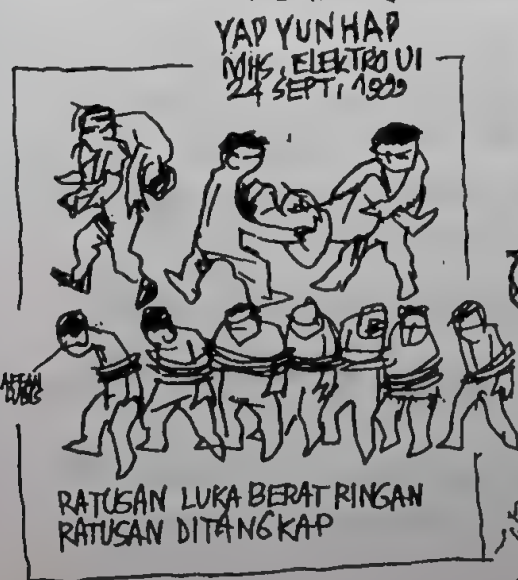 YAP YUN HAP
MHS, ELEKTRO UI
24 SEPT, 1999
LUBIS
RATUSAN LUKA BERAT RINGAN
RATUSAN DITANGKAP